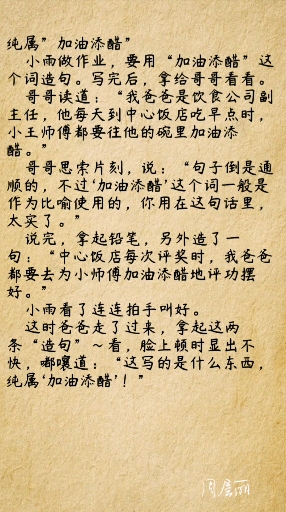 纯属”加油添醋”
小雨做作业，要用“加油添醋”这
个词造句。写完后，拿给哥哥看看。
哥哥读道：“我爸爸是饮食公司副
主任，他每天到中心饭店吃早点时，
小王师傅都要往他的碗里加油添
醋。”
哥哥思索片刻，说：“句子倒是通
顺的，不过‘加油添醋’这个词一般是
作为比喻使用的，你用在这句话里，
太实了。”
说完，拿起铅笔，另外造了一
句：“中心饭店每次评奖时，我爸爸
都要去为小师傅加油添醋地评功摆
好。”
小雨看了连连拍手叫好。
这时爸爸走了过来，拿起这两
条“造句”～看，脸上顿时显出不
快，嘟嚷道：“这写的是什么东西，
纯属‘加油添醋’！”